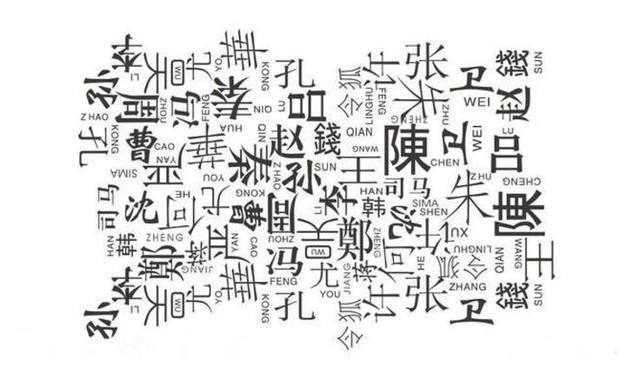 李 吴 WU 尤 YOU 華 KONG 孔 令狐 LINGHU 许 FENG 张 卫 WEI 錢 SUN
孙 ZHAO 周 ZHOU 冯 FENG 秦 QIN 吕 LU 朱 ZHENG ZHU 赵
孔 KONG 曹 CAO YAN 華 HUA 秦 QIN 赵 ZHAO 錢 QIAN WANG 王 陳 CHEN 卫 WEI 吕 LU
SIMA 严 YOU 孙 SUN HAN 司马 SIMA 朱 ZHU 陳 CHENG
司马 沈 何 HE 尤 曹 KONG 周 ZHOU 李 LI 韩 沈 SHEN
HAN 韩 ZHENG 鄭 蒋 JIANG 严 YAN CAO 冯 FENG 吴 鄭 ZHENG 何 HE 许 XU LINGHU 令狐 QIAN WANG 王
孙 李 吴 WU 尤 YOU 華 KONG 孔 尤 YOU JIANG 蒋 许 张 ZHANG 卫 錢 SUN
令狐